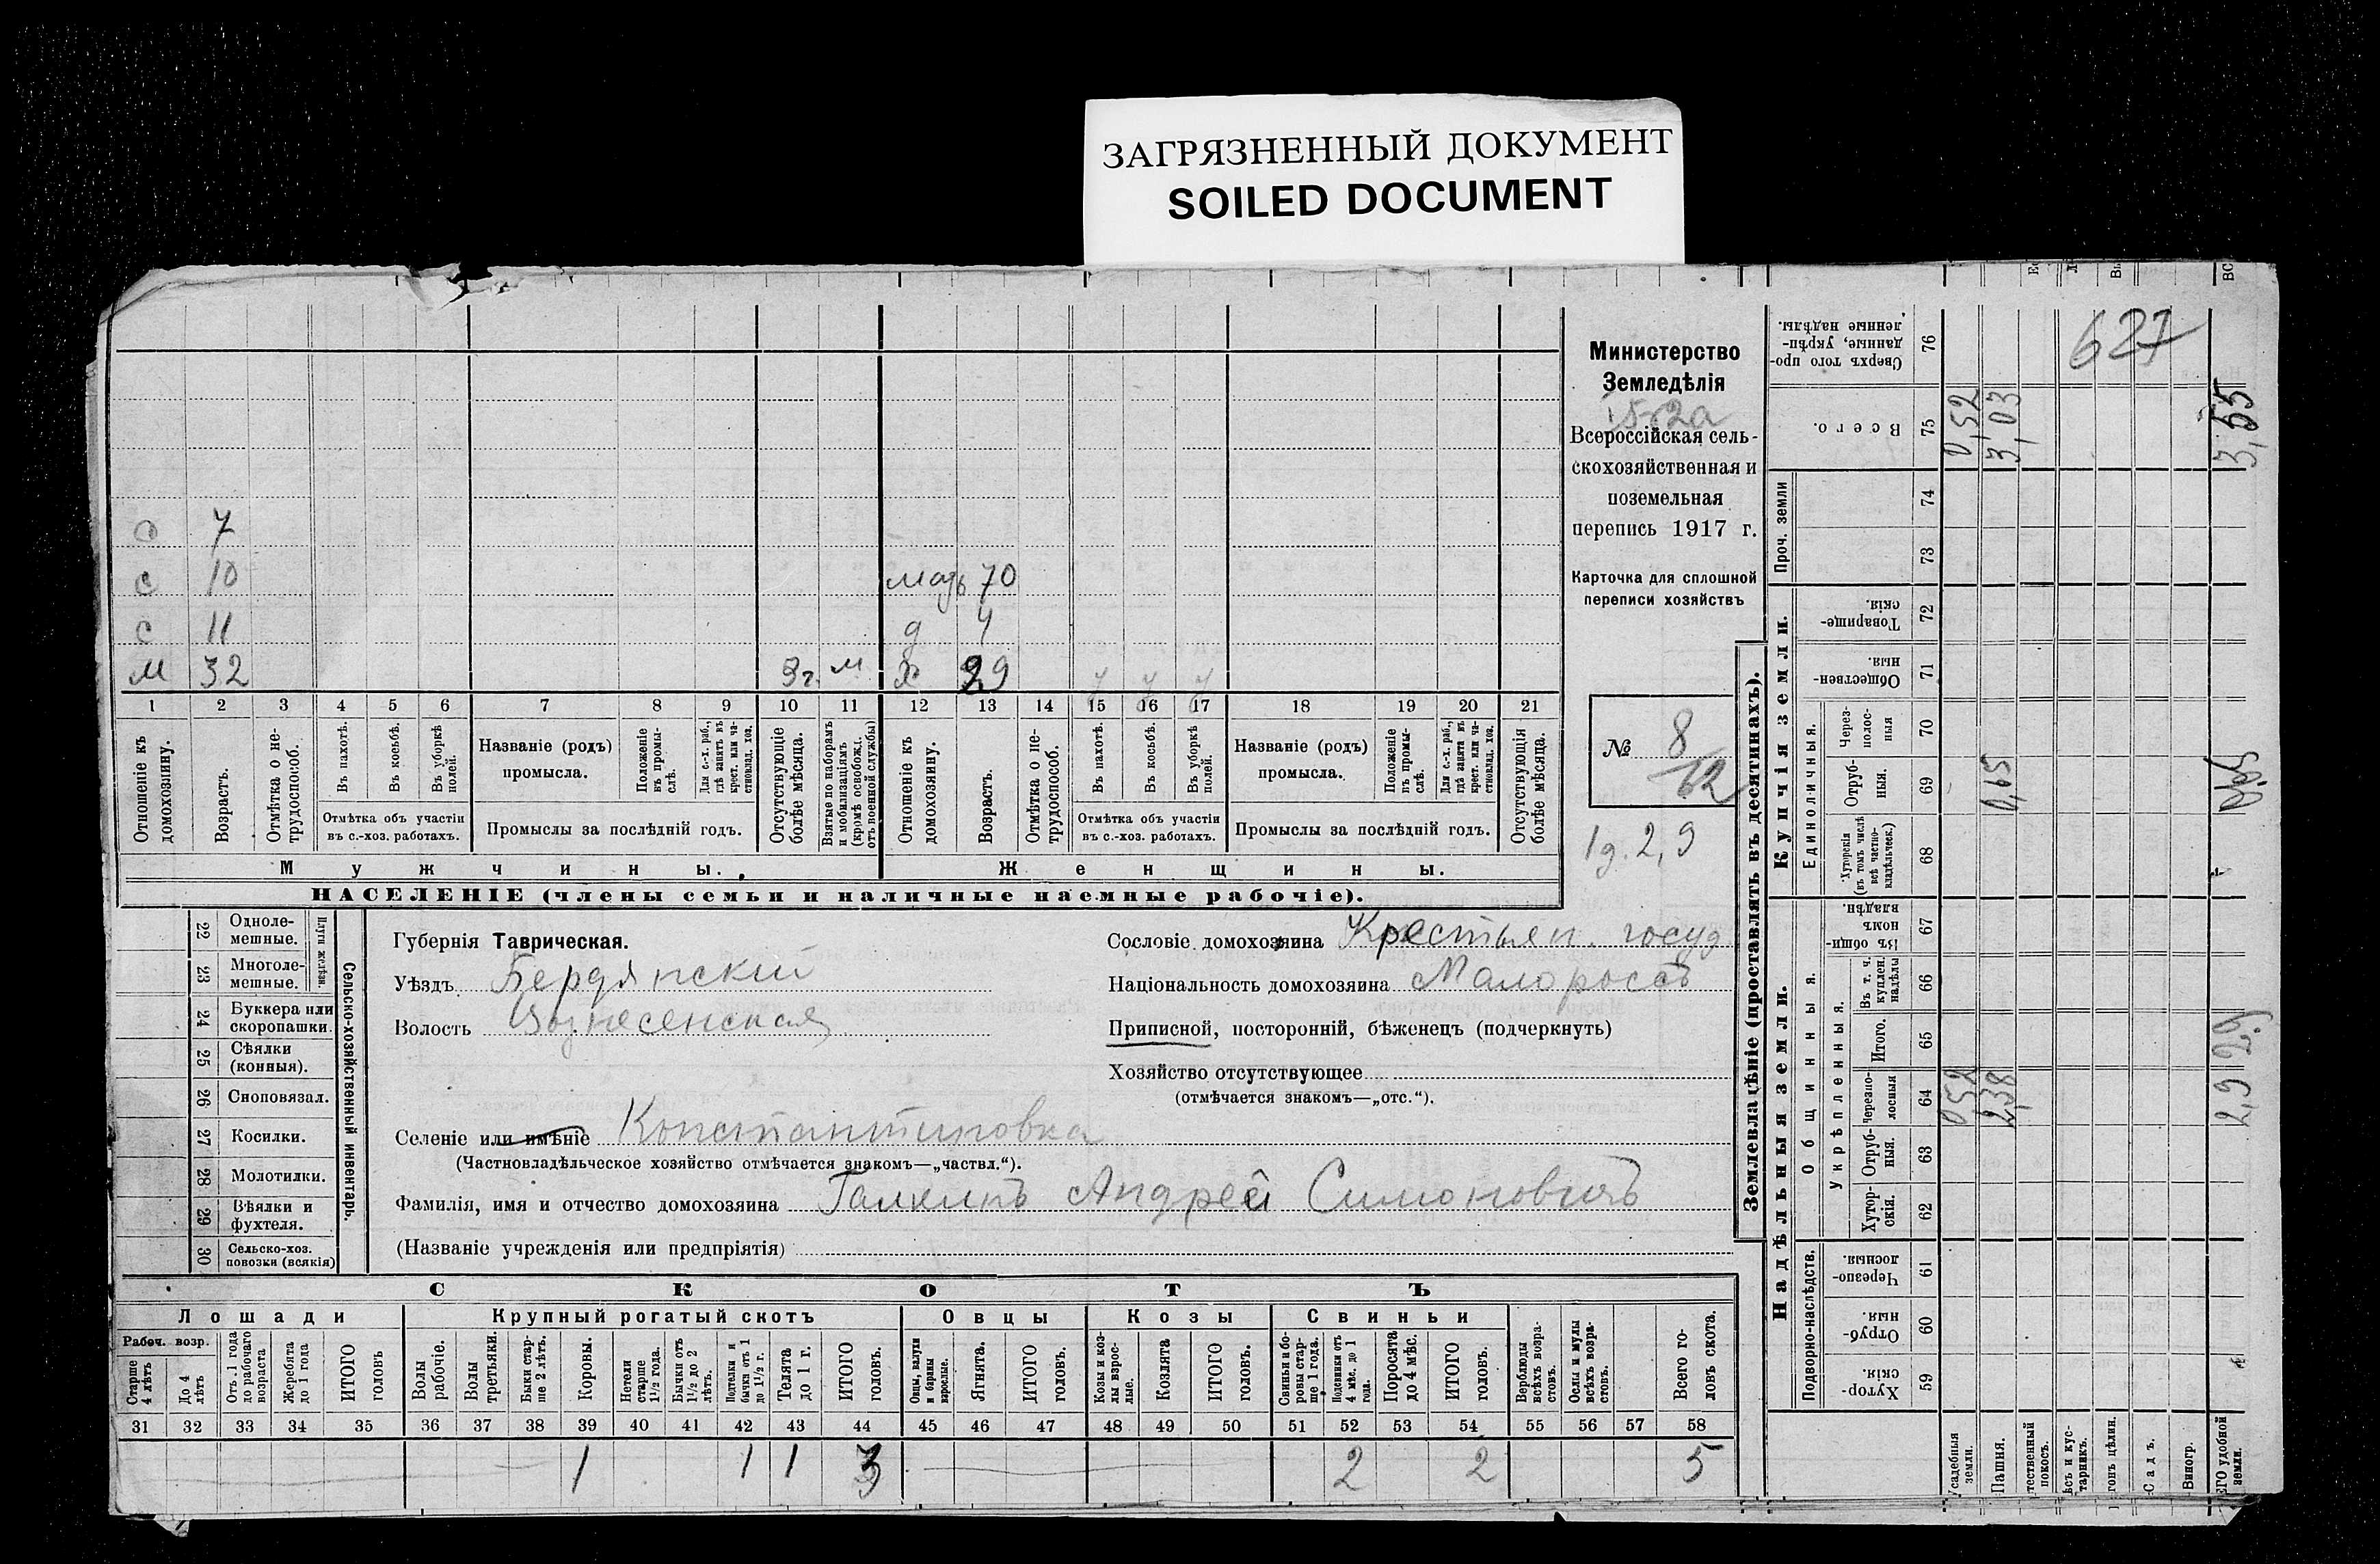 ЗАГРЯЗНЕННЫЙ ДОКУМЕНТ
SOILED DOCUMENT
627
Министерство
Земледѣлія
Всероссійская сель-
скохозяйственная и
поземельная
перепись 1917 г.
Карточка для сплошной
переписи хозяйствъ
№ 8
12
1 д. 2,9
с 7
с 10 мать 70
с 11 д 4
м 32 3г. м х 29 у у у
1 2 3 4 5 6 7 8 9 10 11 12 13 14 15 16 17 18 19 20 21
Отношеніе къ домохозяину.
Возрастъ.
Отмѣтка о не-трудоспособ.
Въ пахотѣ.
Въ косьбѣ.
Въ уборкѣ полей.
Отмѣтка объ участіи въ с.-хоз. работахъ.
Названіе (родъ) промысла.
Положеніе къ промы-слѣ.
Для с.-х. раб., гдѣ занятъ въ крест. или ча-стновлад. хоз.
Промыслы за послѣдній годъ.
Отсутствующіе болѣе мѣсяца.
Взятые по наборамъ и мобилизаціямъ (кромѣ освобожд. отъ военной службы)
Отношеніе къ домохозяину.
Возрастъ.
Отмѣтка о не-трудоспособ.
Въ пахотѣ.
Въ косьбѣ.
Въ уборкѣ полей.
Отмѣтка объ участіи въ с.-хоз. работахъ.
Названіе (родъ) промысла.
Положеніе въ промы-слѣ.
Для с.-х. раб., гдѣ занята въ крест. или ча-стновлад. хоз.
Промыслы за послѣдній годъ.
Отсутствующія болѣе мѣсяца.
Мужчины. Женщины.
НАСЕЛЕНІЕ (члены семьи и наличные наемные рабочіе).
22 Одноле-мешные.
23 Многоле-мешные.
Плуги желѣзн.
24 Буккера или скоропашки.
25 Сѣялки (конныя).
26 Сноповязал.
27 Косилки.
28 Молотилки.
29 Вѣялки и фухтеля.
30 Сельско-хоз. повозки (всякія)
Сельско-хозяйственный инвентарь.
Губернія Таврическая.
Уѣздъ Бердянскій
Волость Вознесенская
Селеніе или имѣніе Константиновка
(Частновладѣльческое хозяйство отмѣчается знакомъ—„частвл.“).
Фамилія, имя и отчество домохозяина Галкинъ Андрей Симоновичъ
(Названіе учрежденія или предпріятія)
Сословіе домохозяина Крестьян. госуд
Національность домохозяина Малороссъ
Приписной, посторонній, бѣженецъ (подчеркнуть)
Хозяйство отсутствующее
(отмѣчается знакомъ—„отс.“).
СКОТЪ
Лошади Крупный рогатый скотъ Овцы Козы Свиньи
Рабоч. возр.
Старше 4 лѣтъ
До 4 лѣтъ
Отъ 1 года до рабочаго возраста
Жеребята до 1 года
ИТОГО головъ
Волы рабочіе.
Волы третьяки.
Быки стар-ше 2 лѣтъ.
Коровы.
Нетели старше 1½ года.
Бычки отъ 1½ до 2 лѣтъ.
Подтелки и бычки отъ 1 до 1½ г.
Телята до 1 г.
ИТОГО головъ.
Овцы, валухи и бараны взрослые.
Ягнята.
ИТОГО головъ.
Козы и коз-лы взрос-лые.
Козлята
ИТОГО головъ.
Свиньи и бо-ровы стар-ше 1 года.
Подсвинки отъ 4 мѣс. до 1 года.
Поросята до 4 мѣс.
ИТОГО головъ.
Верблюды всѣхъ возра-стовъ.
Ослы и мулы всѣхъ возра-стовъ.
Всего го-ловъ скота.
31 32 33 34 35 36 37 38 39 40 41 42 43 44 45 46 47 48 49 50 51 52 53 54 55 56 57 58
1 1 1 3 2 2 5
Землевладѣніе (проставлять въ десятинахъ).
Надѣльныя земли. Купчія земли. Проч. земли
Подворно-наслѣдств.
Общинныя.
Укрѣпленныя.
Единоличныя.
Хутор-скія. 59
Отруб-ныя. 60
Черезпо-лосныя. 61
Хутор-скія. 62
Отруб-ныя. 63
Черезпо-лосныя 64 0,52 2,38 2,9
Итого. 65
Въ т. ч. куплен. надѣлы 66
Въ общи-номъ владѣн. 67
Хуторскія (въ томъ числѣ всѣ частно-владѣльческ.) 68
Отруб-ныя. 69 0,65
Через-полос-ныя 70
Обществен-ныя. 71
Товарище-скія. 72
73
74
Всего. 75 0,52 3,03 3,55
Сверхъ того про-данные, укрѣп-ленные надѣлы. 76
Усадебныя земли.
Пашня.
тественный покосъ.
ѣсъ и кус-тарникъ.
гонъ цѣлин.
Садъ.
Виногр.
ЕГО удобной земли.